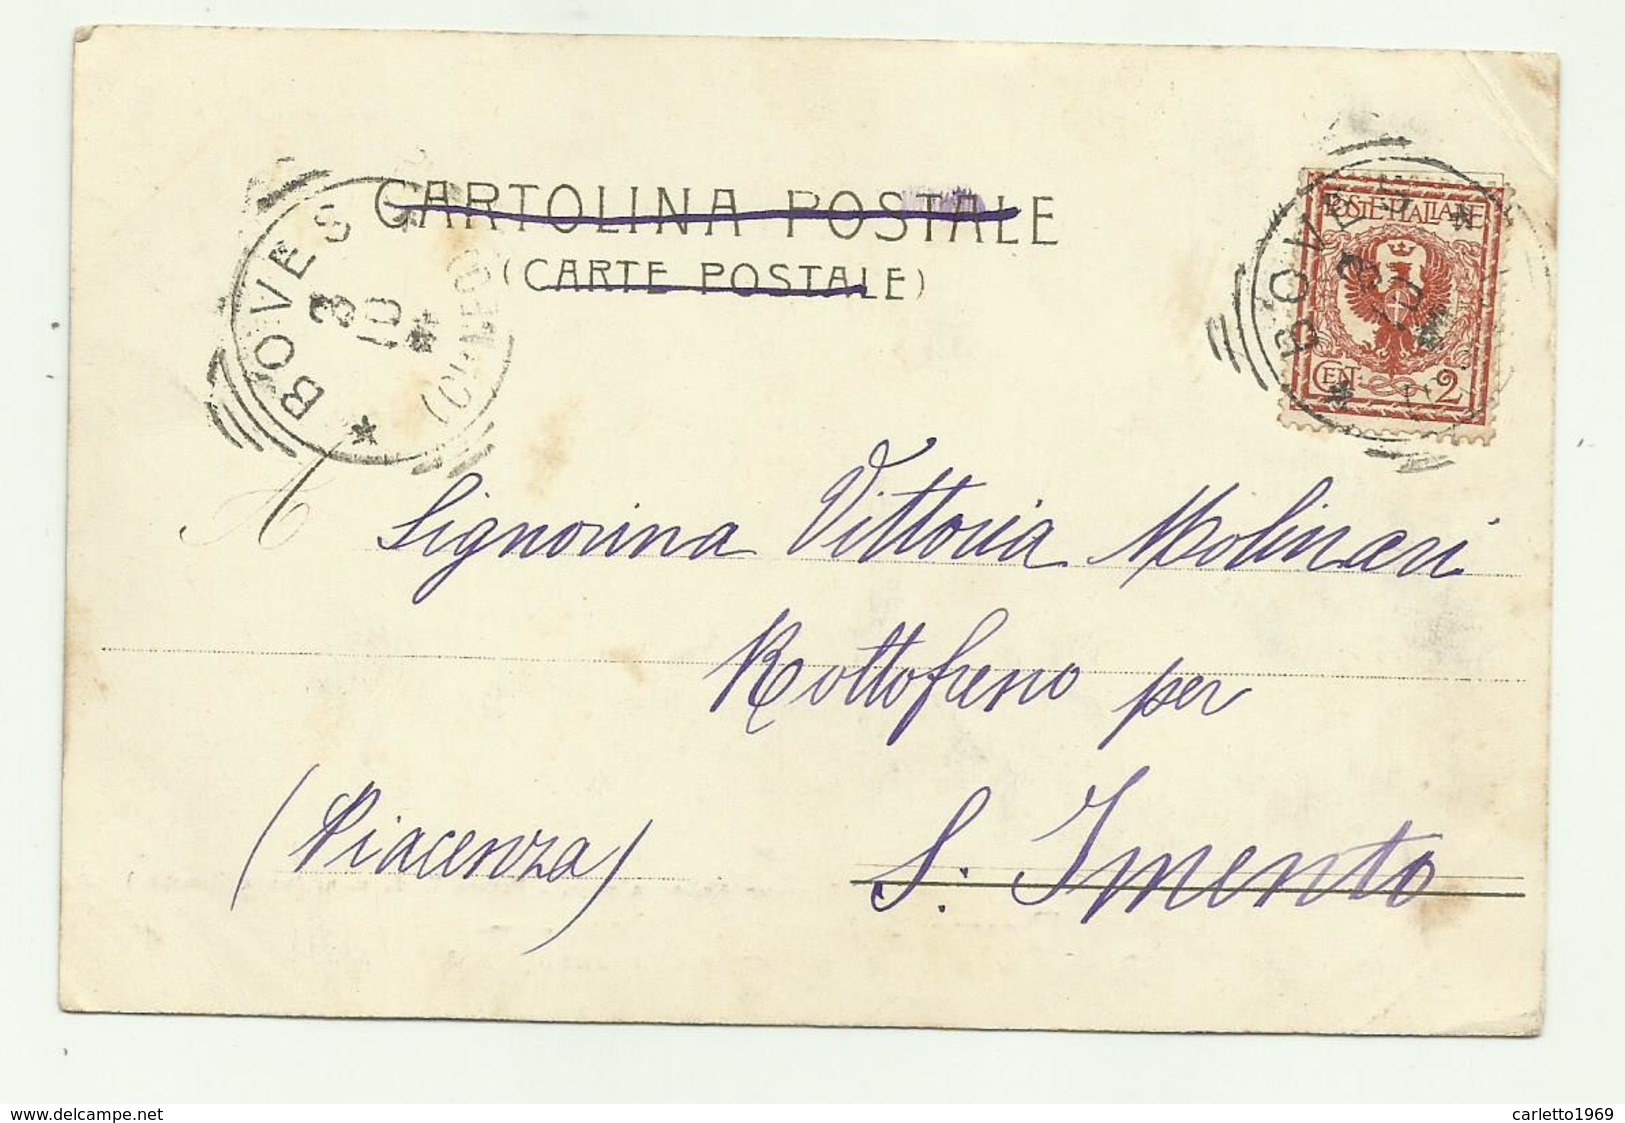 CARTOLINA POSTALE
(CARTE POSTALE)
BOVES
(CUNEO)
3
10
POSTE · ITALIANE
CEN. 2
BOVES
3
10
A
Signorina Vittoria Molinari
Rottofreno per
(Piacenza) S. Imento
www.delcampe.net
carletto1969